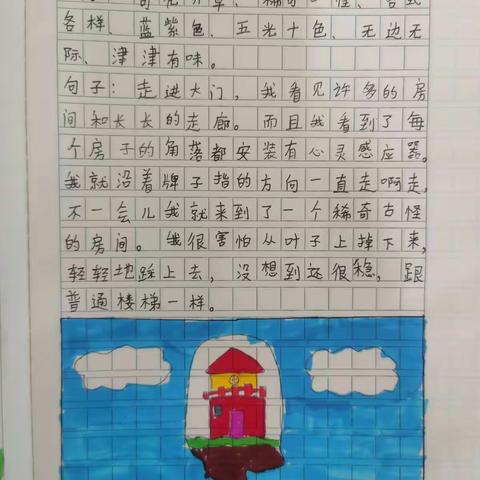 各样、蓝紫色、五光十色、无边无
际、津津有味。
句子：走进大门，我看见许多的房
间和长长的走廊。而且我看到了每
个房子的角落都安装有心灵感应器。
我就沿着牌子指的方向一直走啊走，
不一会儿我就来到了一个稀奇古怪
的房间。我很害怕从叶子上掉下来，
轻轻地踩上去，没想到还很稳，跟
普通楼梯一样。